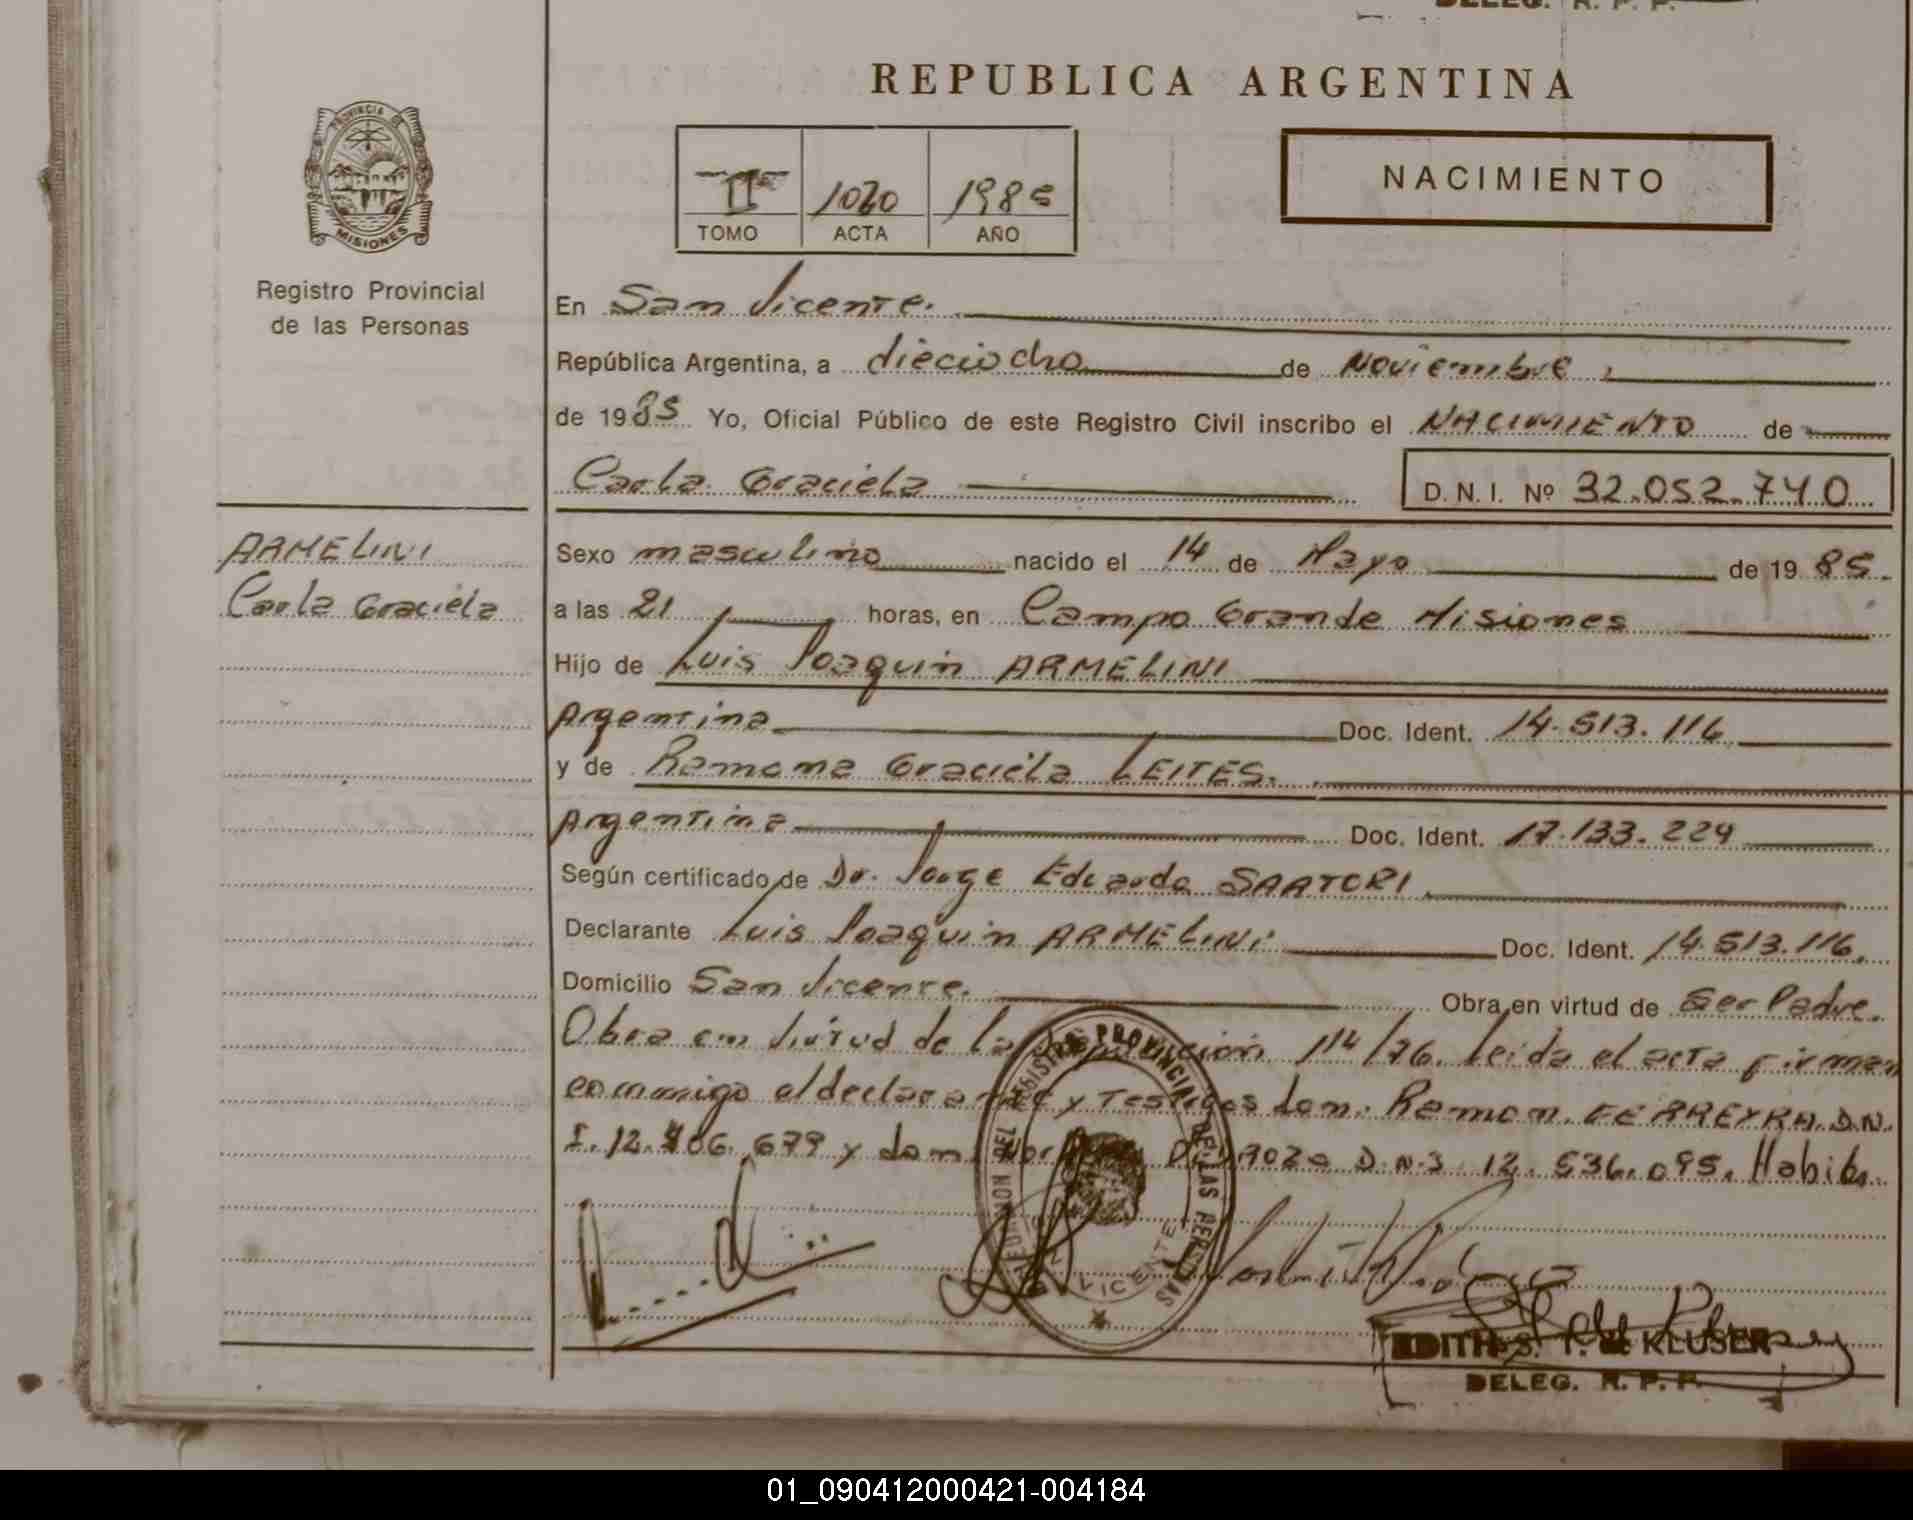 DELEG. R. P. P.
REPUBLICA ARGENTINA
PROVINCIA DE
MISIONES
Registro Provincial
de las Personas
II 1985
TOMO ACTA AÑO
NACIMIENTO
En San Vicente.
República Argentina, a dieciocho de Noviembre
de 1985 Yo, Oficial Público de este Registro Civil inscribo el NACIMIENTO de
Carla Graciela D. N. I. Nº 32.052.740
ARMELINI
Carla Graciela
Sexo masculino nacido el 14 de Mayo de 1985.
a las 21 horas, en Campo Grande Misiones
Hijo de Luis Joaquin ARMELINI
Argentina Doc. Ident. 14.513.116
y de Ramona Graciela LEITES.
Argentina Doc. Ident. 17.133.229
Según certificado de Dr. Jorge Eduardo SARTORI
Declarante Luis Joaquin ARMELINI Doc. Ident. 14.513.116.
Domicilio San Vicente. Obra en virtud de Ser Padre.
Obra en virtud de la 114/76. leida el acta firman
conmigo el declarante y Testigos don. Ramon. FERREYRA. D.N.
I. 12.406.679 y don D.N.I 12.536.095. Habib.
REGISTRO PROVINCIAL DE LAS PERSONAS
VICENTE
EDITH S. T. de KLUSER
DELEG. R. P. P.
01_090412000421-004184